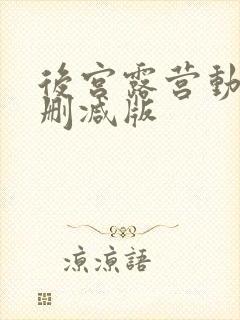 後宮露营動
删减版
凉凉語